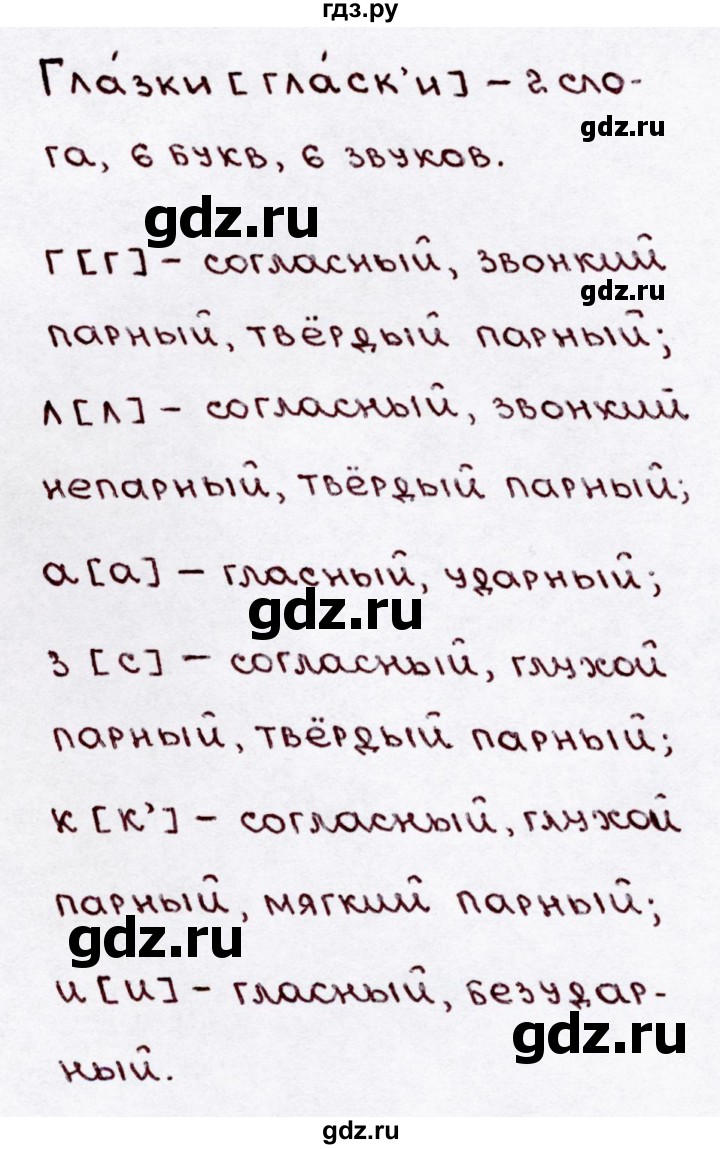 гдз.ру
Гла́зки [гла́ск'и] – 2 сло-
gdz.ru
га, 6 букв, 6 звуков.
gdz.ru
г [г] – согласный, звонкий
gdz.ru
парный, твёрдый парный;
л [л] – согласный, звонкий
непарный, твёрдый парный;
а [а] – гласный, ударный;
gdz.ru
з [с] – согласный, глухой
парный, твёрдый парный;
к [к'] – согласный, глухой
парный, мягкий парный;
gdz.ru
и [и] – гласный, безудар-
gdz.ru
ный.
gdz.ru